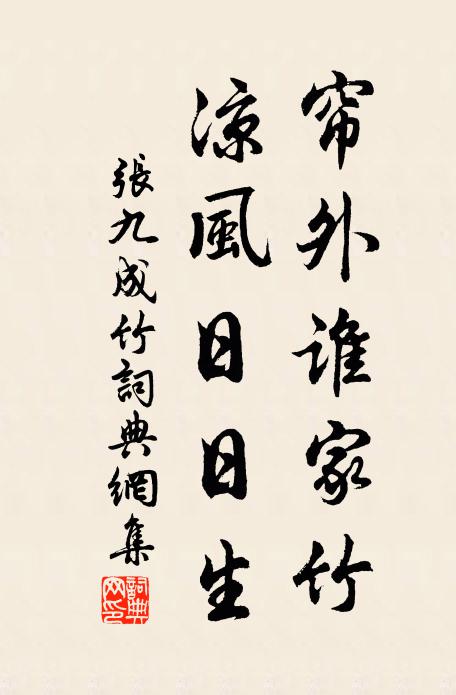 帘外谁家竹
涼風日日生
張九成竹詞典網集
詞典网印